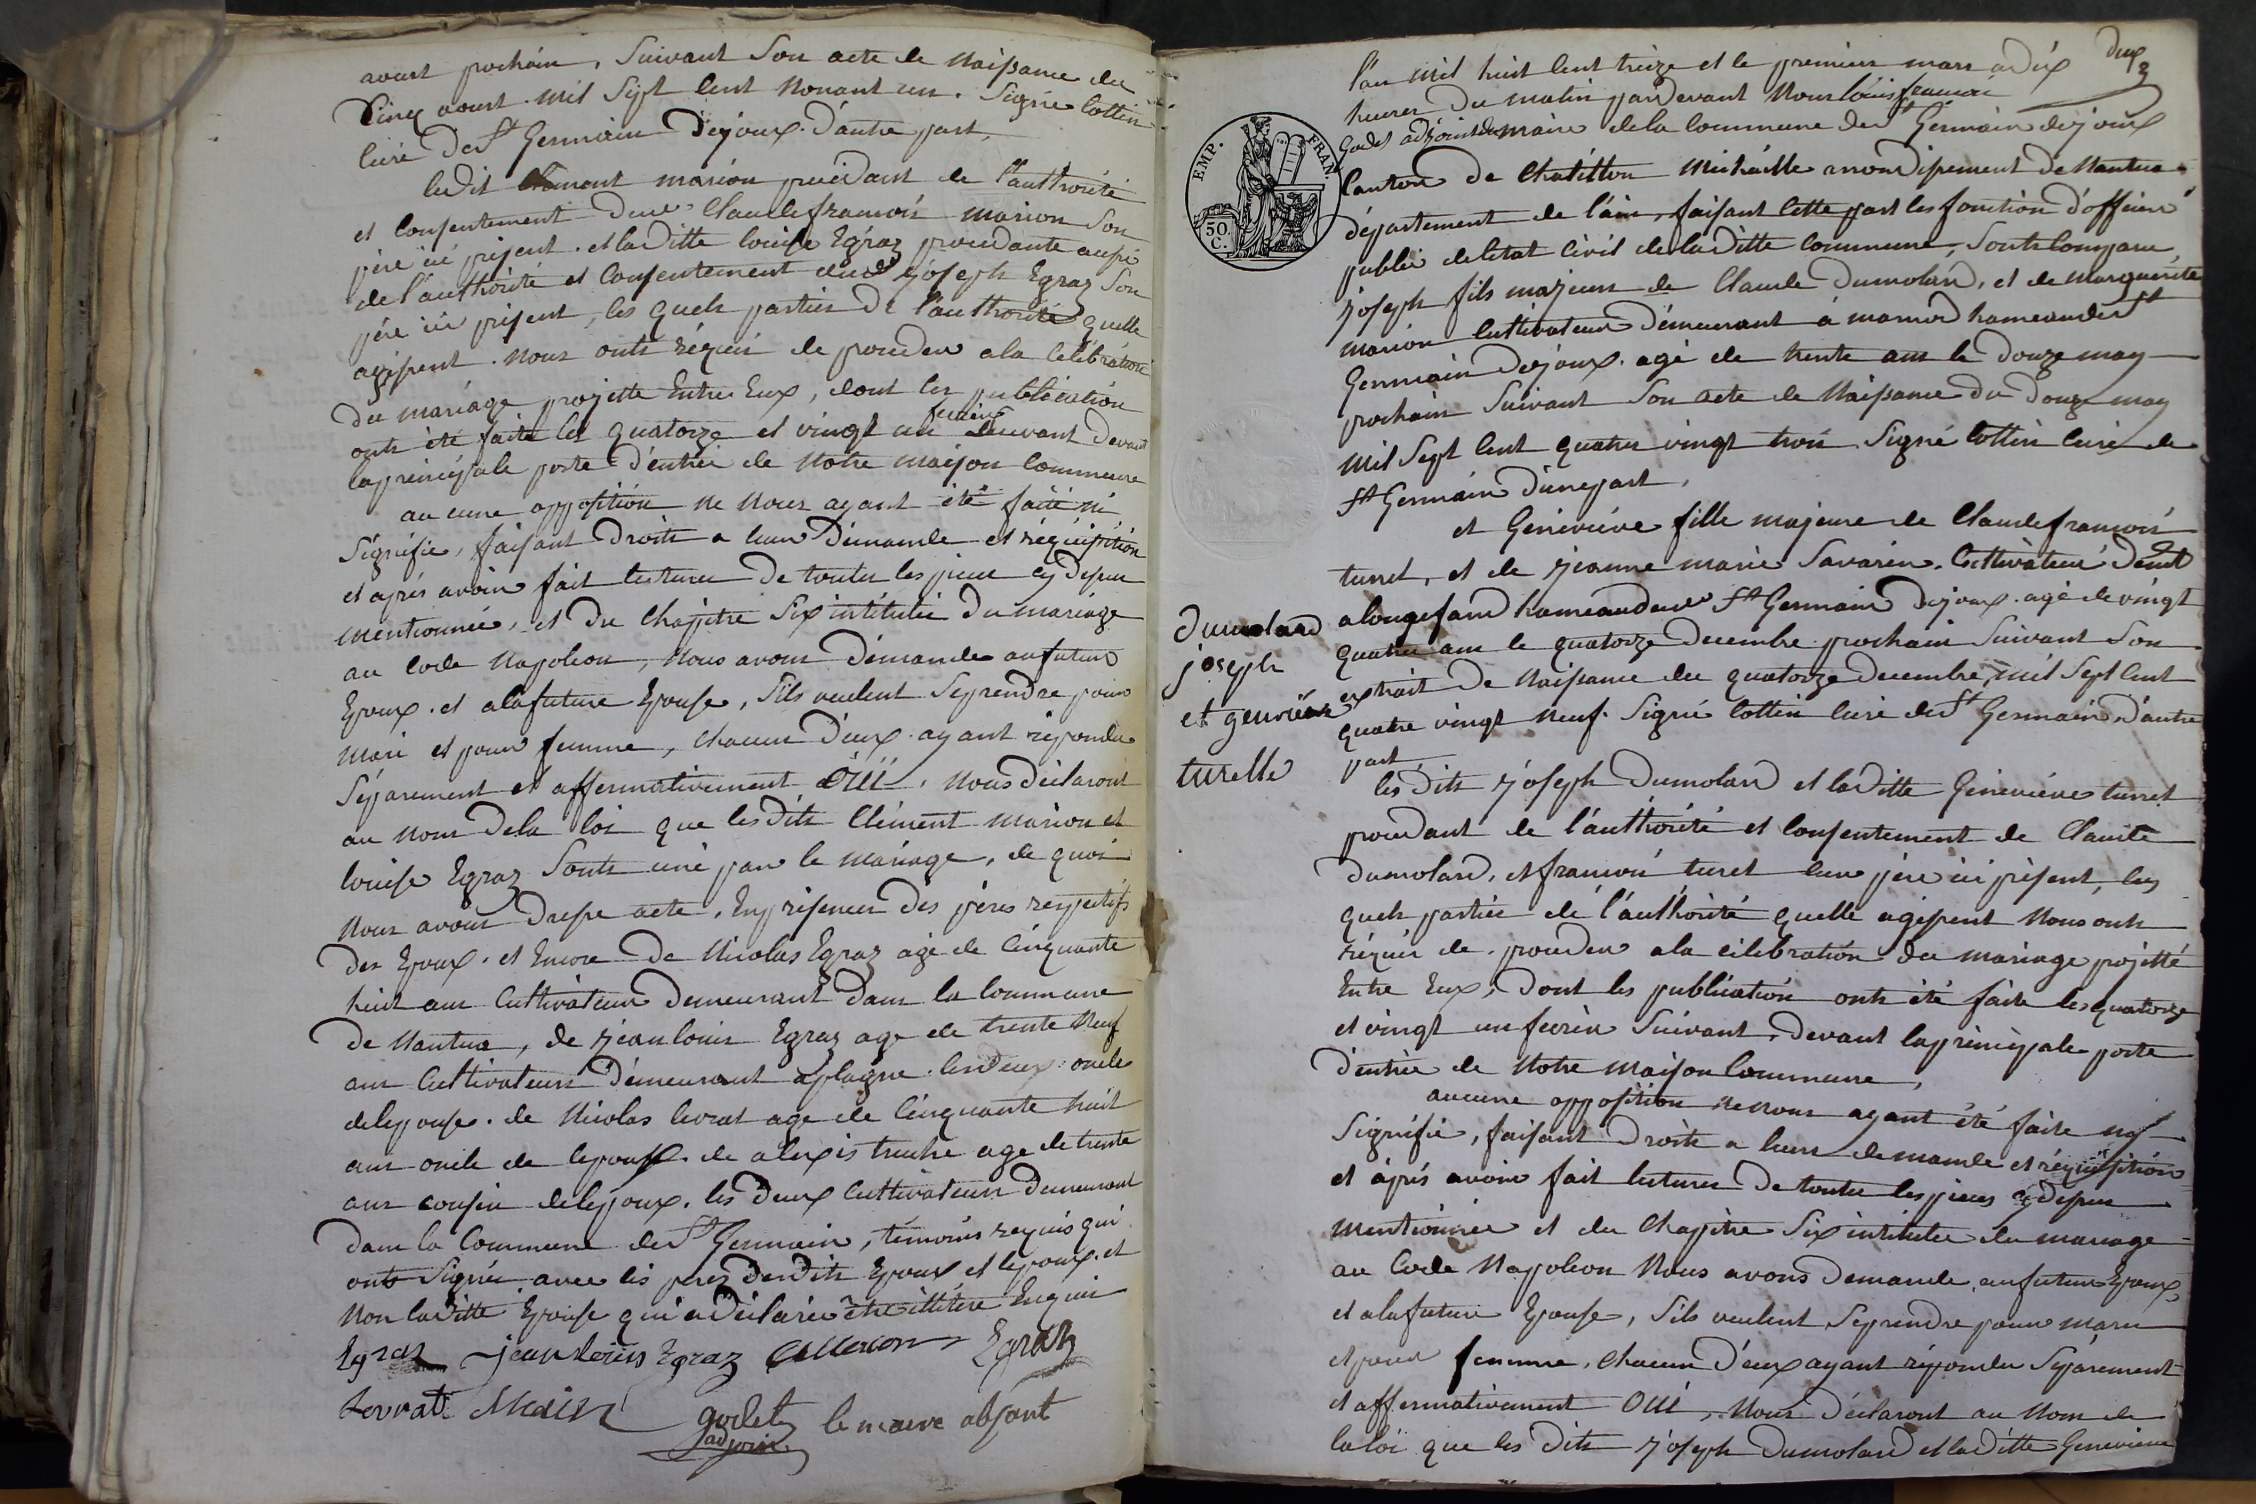 avout prochain, Suivant Son acte de Naissance du
Cinq aoust mil Sept Cent Nonant un. Signé Cottin
Curé de St Germain Dejoux. d'autre part,
ledit Clement marion procédant de l'authorité
et Consentement dud. Claude francois marion Son
père icî présent. et laditte louise Egraz procédante aussi
de l'authorité et Consentement dudt. joseph Egraz Son
père icî présent, les quels parties de l'authorité quelle
agissent. nous onts réquis de proceder a la Célébration
du mariage projetté Entre Eux, dont les publication
onts été faite les quatorze et vingt un fevrier Suivant devant
laprincipale porte d'entrée de Notre maison Commune
aucune opposition ne nous ayant été faite ni
Signifié, faisant Droits a leur Démande et réquisition
et aprés avoir fait lecture de toutes les pieces cy Dessus
mentionnée, et du Chapitre Six intitulée du mariage
au Code Napoleon, Nous avons démande aufutur
Epoux. et alafuture Epouse, Sils veulent Seprendre pour
mari et pour femme, chacun d'eux. ayant répondu
Séparement et affermativement OUI. Nous déclaront
au Nom dela loi que lesdits Clément marion et
louise Egraz Sonts unis par le mariage, de quoi
Nous avons dressé acte, En présence des pères respectifs
des Epoux. et Encore de Nicolas Egraz agé de Cinquante
huit ans Cultivateur demeurant dans la Commune
de Nantua, de jean louis Egraz age de trente Neuf
ans Cultivateur démeurant aplagne. les deux oncle
delepouse. de Nicolas levrat age de Cinquante huit
ans oncle de lepoux. de alexis truche age de trente
ans cousin delepoux. les deux Cultivateurs demeurant
dans la Commune de St Germain, témoins requis qui
onts Signés avec les peres desdits Epoux et lepoux. et
Non laditte Epouse qui a déclarée être illitére Enquis
Egraz jean louis Egraz Cl Marion Egraz
Levrat godet le maire absant
adjoint
l'an Mil huit Cent treize et le premier mars à dix
heures du matin pardevant Nous louis francois
godet adjoint du maire dela Commune de St Germain dejoux
Canton de Chatillon michaille arrondissement de Nantua
département de l'ain, faisant Cette part les fonction d'officier
public deletat Civil deladitte Commune, Sonts Comparu
joseph fils majeur de Claude Dumolard, et de marguerite
marion Cultivateur démeurant á marnod hameau de St
Germain Dejoux. agé de trente ans le douze may
prochain Suivant Son acte de Naissance du Douze may
mil Sept Cent quatre vingt trois Signé Cottin Curé de
St Germain d'une part,
et Généviéve fille majeure de Claude francois
turret, et de jeanne marie Savarin. Cultivateur démt
alongefand hameau dud. St Germain Dejoux. agé de vingt
quatre ans le quatorze decembre prochain Suivant Son
extrait de Naissance du quatorze decembre, mil Sept Cent
quatre vingt Neuf. Signé Cottin Curé de St Germain d'autre
part
Dumolard
joseph
et genviève
turelle
les dits joseph Dumolard et laditte Généviéve turret
procedant de l'authorité et Consentement de Claude
Dumolard, et francois turet leur père ici présent, les
quels partiée de l'authorité quelle agissent Nous onts
réquis de proceder a la célébration du mariage projetté
Entre Eux, dont les publication onts été faite les quatorze
et vingt un fevrier Suivant, devant laprincipale porte
d'entrée de Notre maison Commune,
aucune opposition ne nous ayant été faite ny
Signifié, faisant Droite a leur demande et réquisition
et après avoir fait lecture de toutes les pieces cy dessus
mentionnée et du Chapitre Six intitulée du mariage
au Code Napoleon Nous avons Demande aufutur Epoux,
et alafuture Epouse, Sils veulent Seprendre pour mari
et pour femme, chacun d'eux ayant répondu Séparement
et affermativement OUI, Nous déclaront au Nom de
la loi que les dits joseph Dumolard et laditte Genevieve
EMP. FRAN.
50
C.